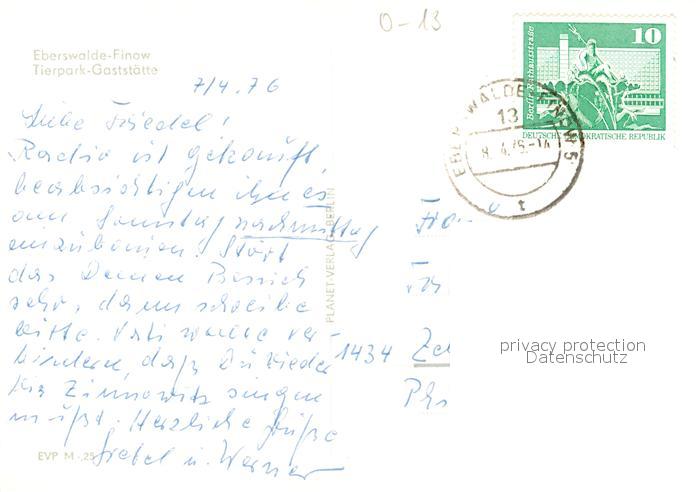 0-13
Eberswalde-Finow
Tierpark-Gaststätte
7/4.76
Liebe Friedel!
Radio ist gekauft,
beabsichtigen ihn es
am Sonntag nachmittag
einzubauen. Stört
das Deinen Besuch
sehr, dann schreibe
bitte. Vati würde ver-
hindern, daß Du wieder
Zinnowitz singen
mußt. Herzliche Grüße
u. Werner
EVP M -,25
PLANET-VERLAG BERLIN
10
Berlin, Rathausstraße
DEUTSCHE DEMOKRATISCHE REPUBLIK
13
8.4.76-14
t
Fra
1434 Ze
privacy protection
Datenschutz